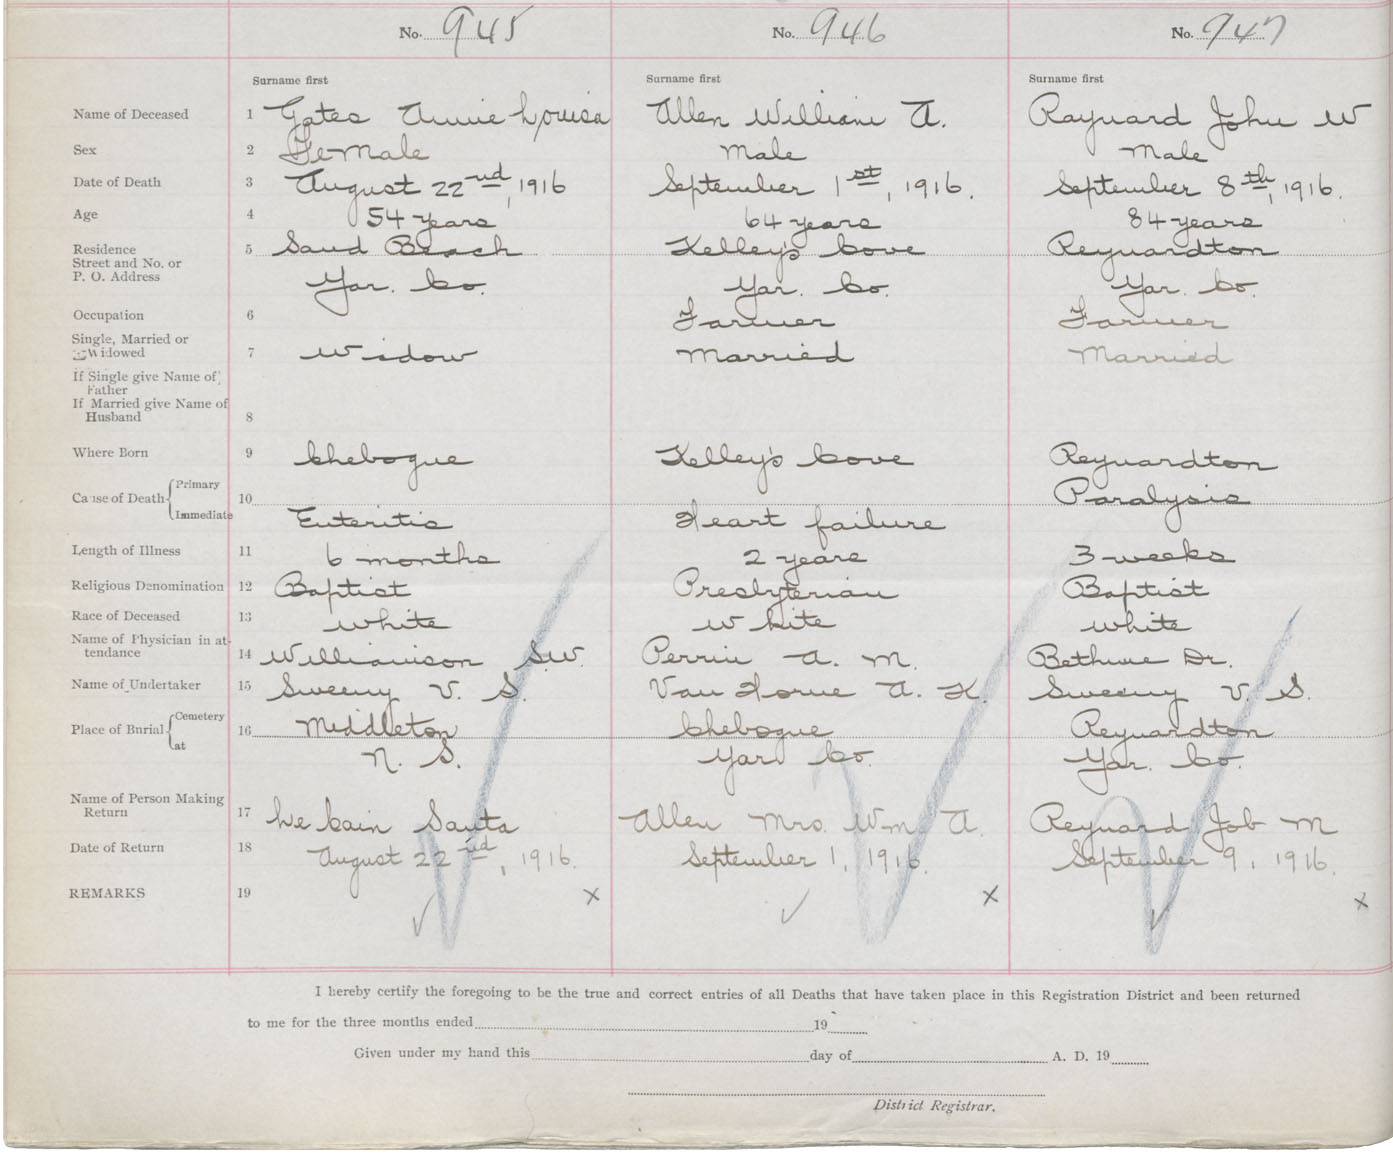 No. 945 No. 946 No. 947
Surname first Surname first Surname first
Name of Deceased 1 Gates Annie Louisa Allen William A. Raynard John W
Sex 2 Female Male Male
Date of Death 3 August 22nd, 1916 September 1st, 1916. September 8th, 1916.
Age 4 54 years 64 years 84 years
Residence 5 Sand Beach Kelley's Cove Reynardton
Street and No. or
P. O. Address Yar. Co. Yar. Co. Yar. Co.
Occupation 6 Farmer Farmer
Single, Married or
Widowed 7 Widow Married Married
If Single give Name of
Father
If Married give Name of
Husband 8
Where Born 9 Chebogue Kelley's Cove Reynardton
Cause of Death Primary 10 Paralysis
Immediate Enteritis Heart failure
Length of Illness 11 6 months 2 years 3 weeks
Religious Denomination 12 Baptist Presbyterian Baptist
Race of Deceased 13 White White White
Name of Physician in at-
tendance 14 Williamson S.W. Perrin A. M. Bethune Dr.
Name of Undertaker 15 Sweeny V. S. Van Horne A. K. Sweeny V. S.
Place of Burial Cemetery 16 Middleton Chebogue Reynardton
at N. S. Yar. Co. Yar. Co.
Name of Person Making
Return 17 Santa Allen Mrs. Wm. A. Reynard Job M
Date of Return 18 August 22nd, 1916. September 1, 1916. September 9, 1916.
REMARKS 19 x x x
I hereby certify the foregoing to be the true and correct entries of all Deaths that have taken place in this Registration District and been returned
to me for the three months ended 19
Given under my hand this day of A. D. 19
District Registrar.